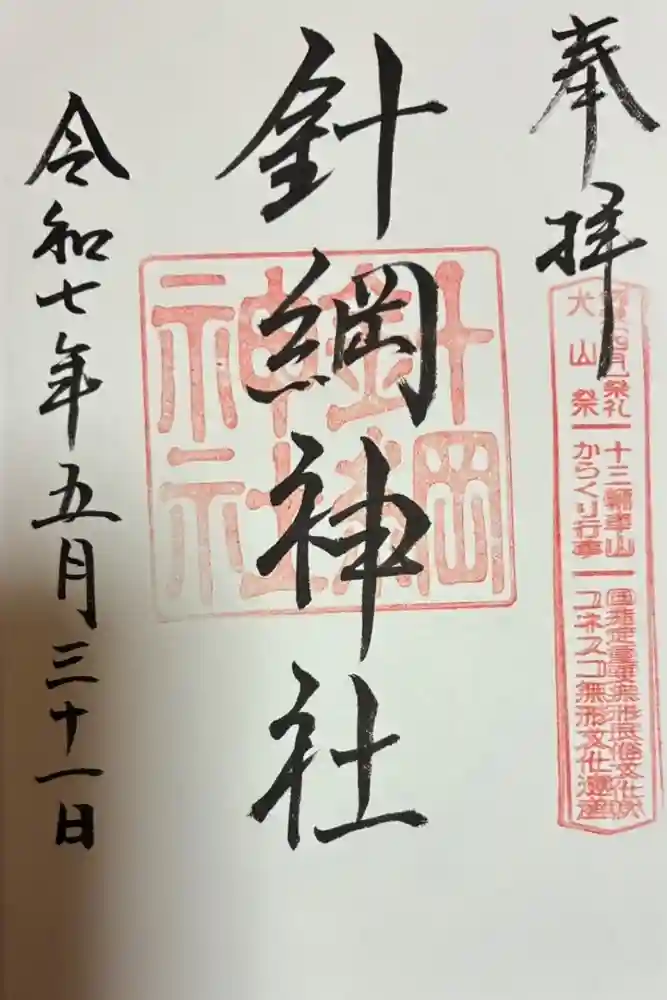 奉拝
犬山祭
十三輌車山
からくり行事
国指定重要無形民俗文化財
ユネスコ無形文化遺産
針綱神社
針綱神社
令和七年五月三十一日